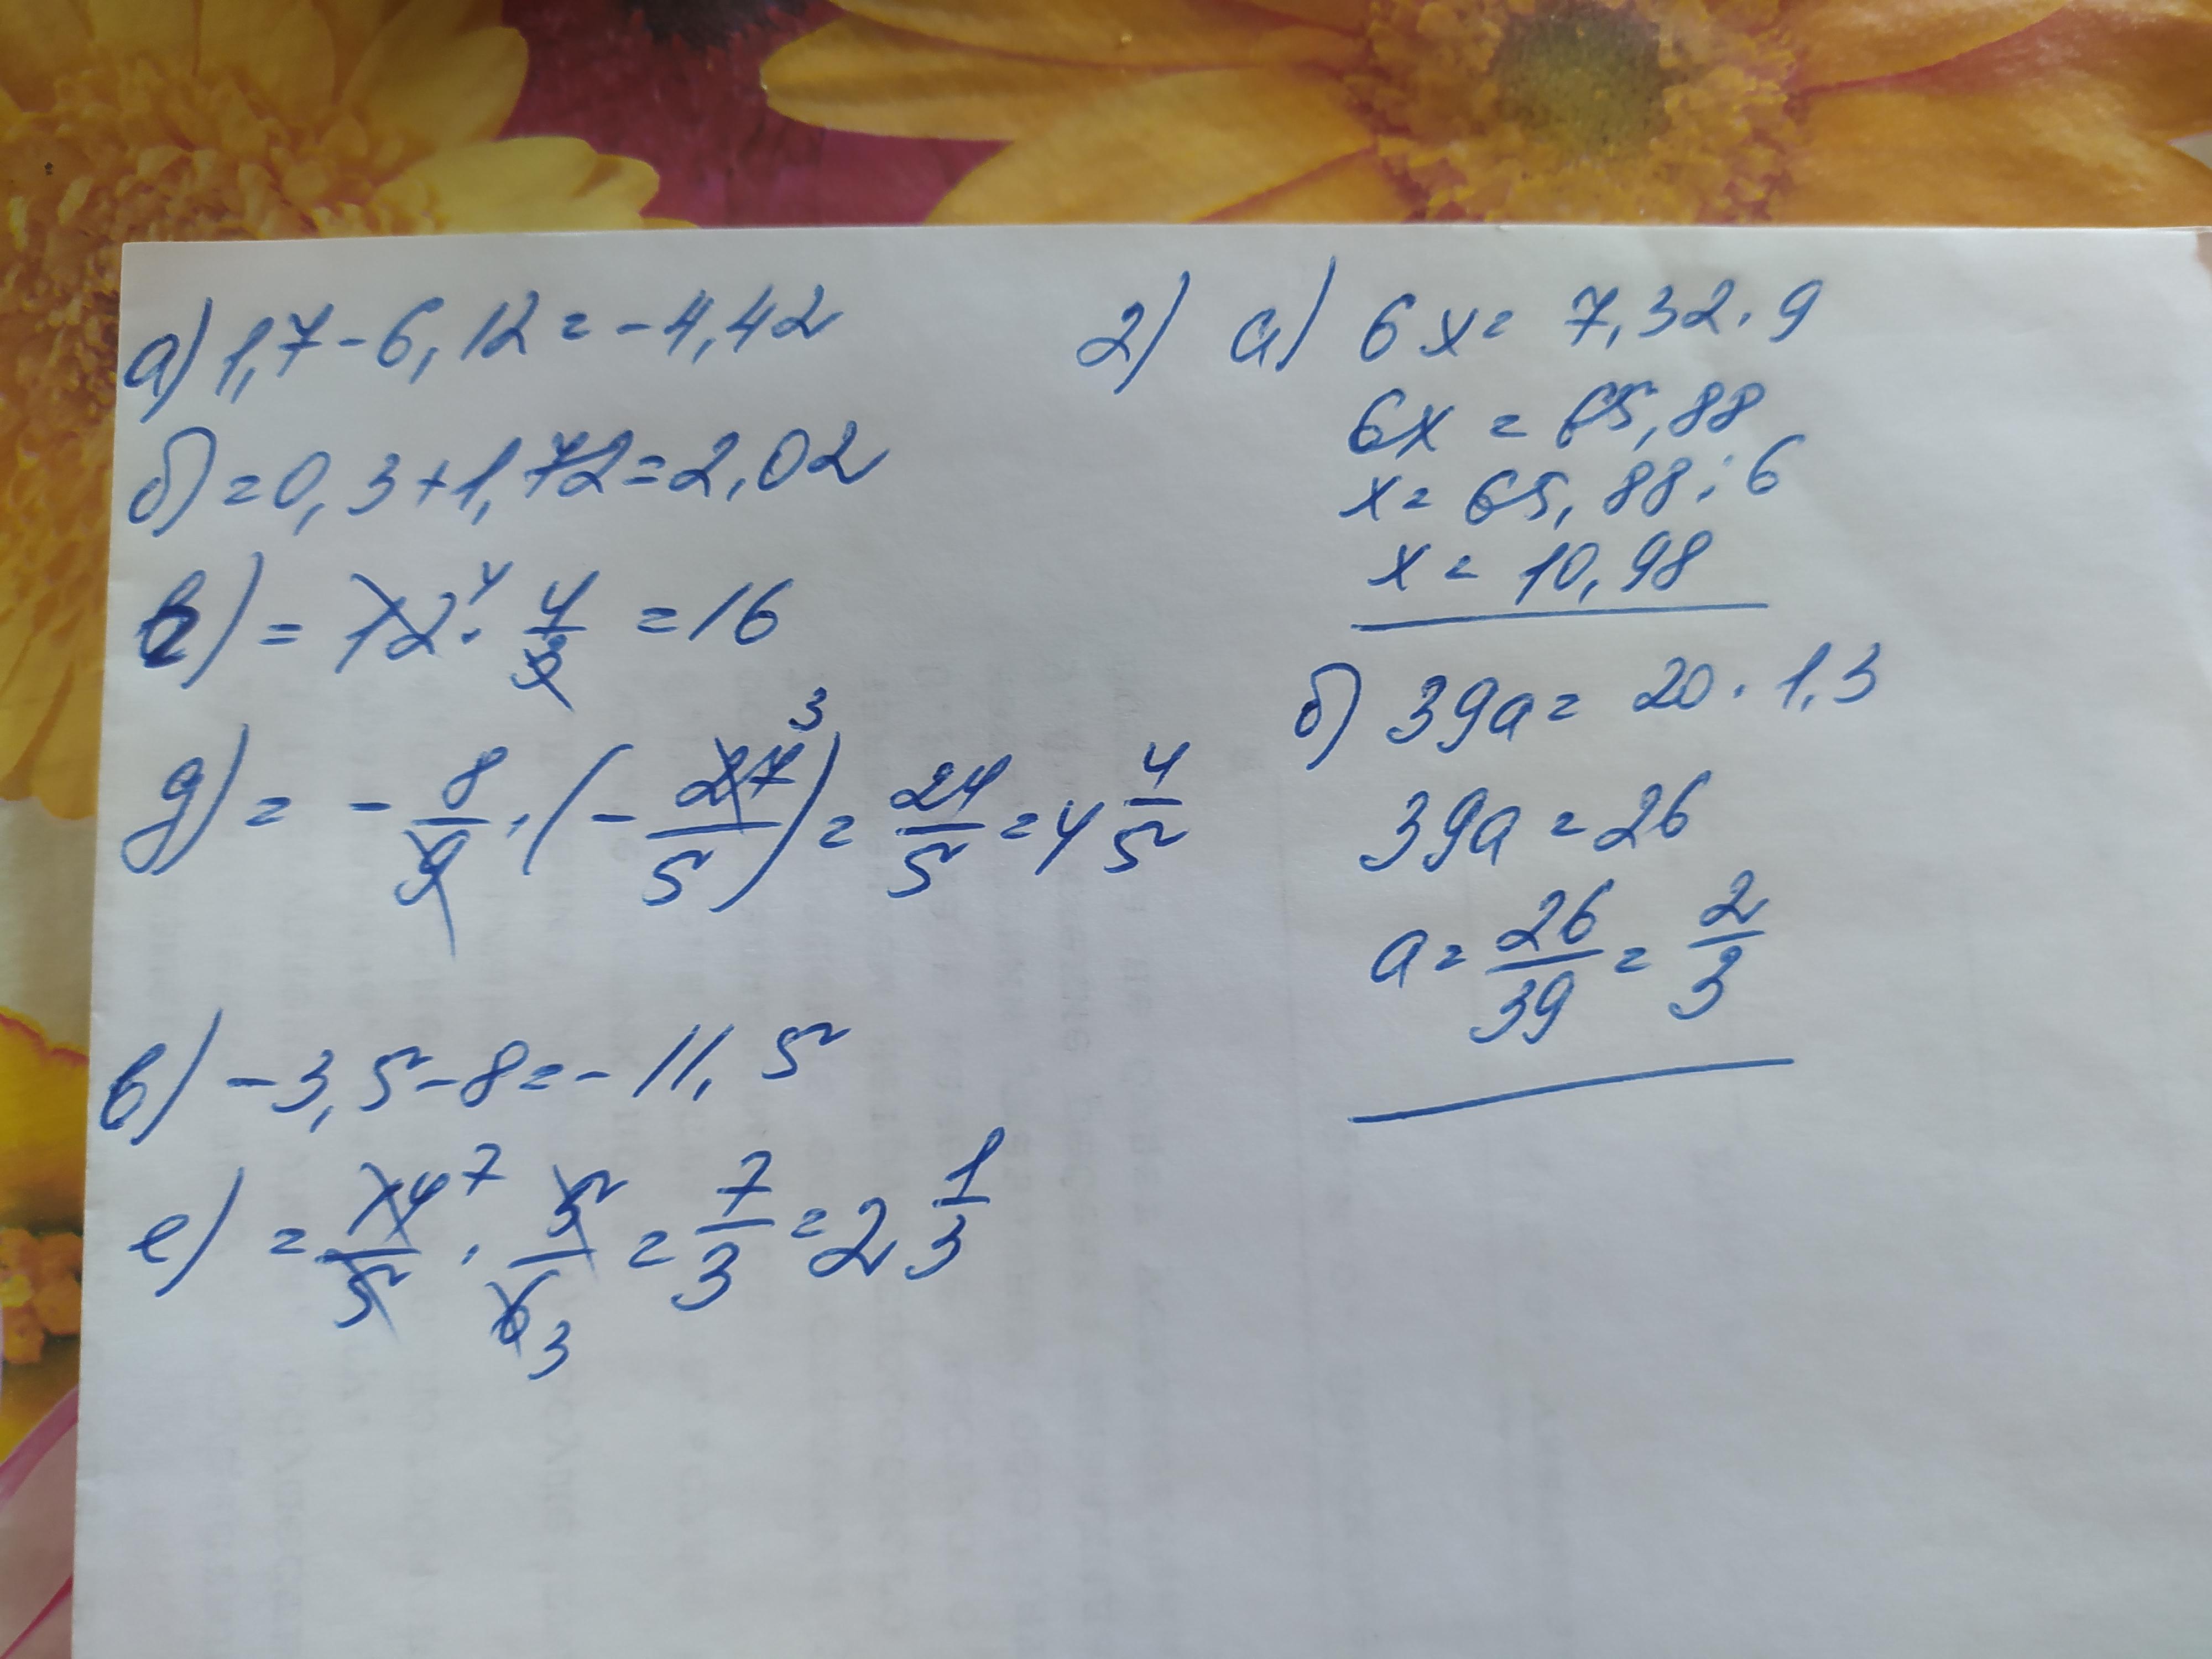 а) 1,7 - 6,12 = - 4,42
б) = 0,3 + 1,72 = 2,02
в) = 12 4 · 4/3 = 16
д) = - 8/9 · (- 27 3/5) = 24/5 = 4 4/5
в) - 3,5 - 8 = - 11,5
е) = 14 7/5 · 5/6 3 = 7/3 = 2 1/3
2) а) 6x = 7,32 · 9
6x = 65,88
x = 65,88 : 6
x = 10,98
б) 39a = 20 · 1,3
39a = 26
a = 26/39 = 2/3